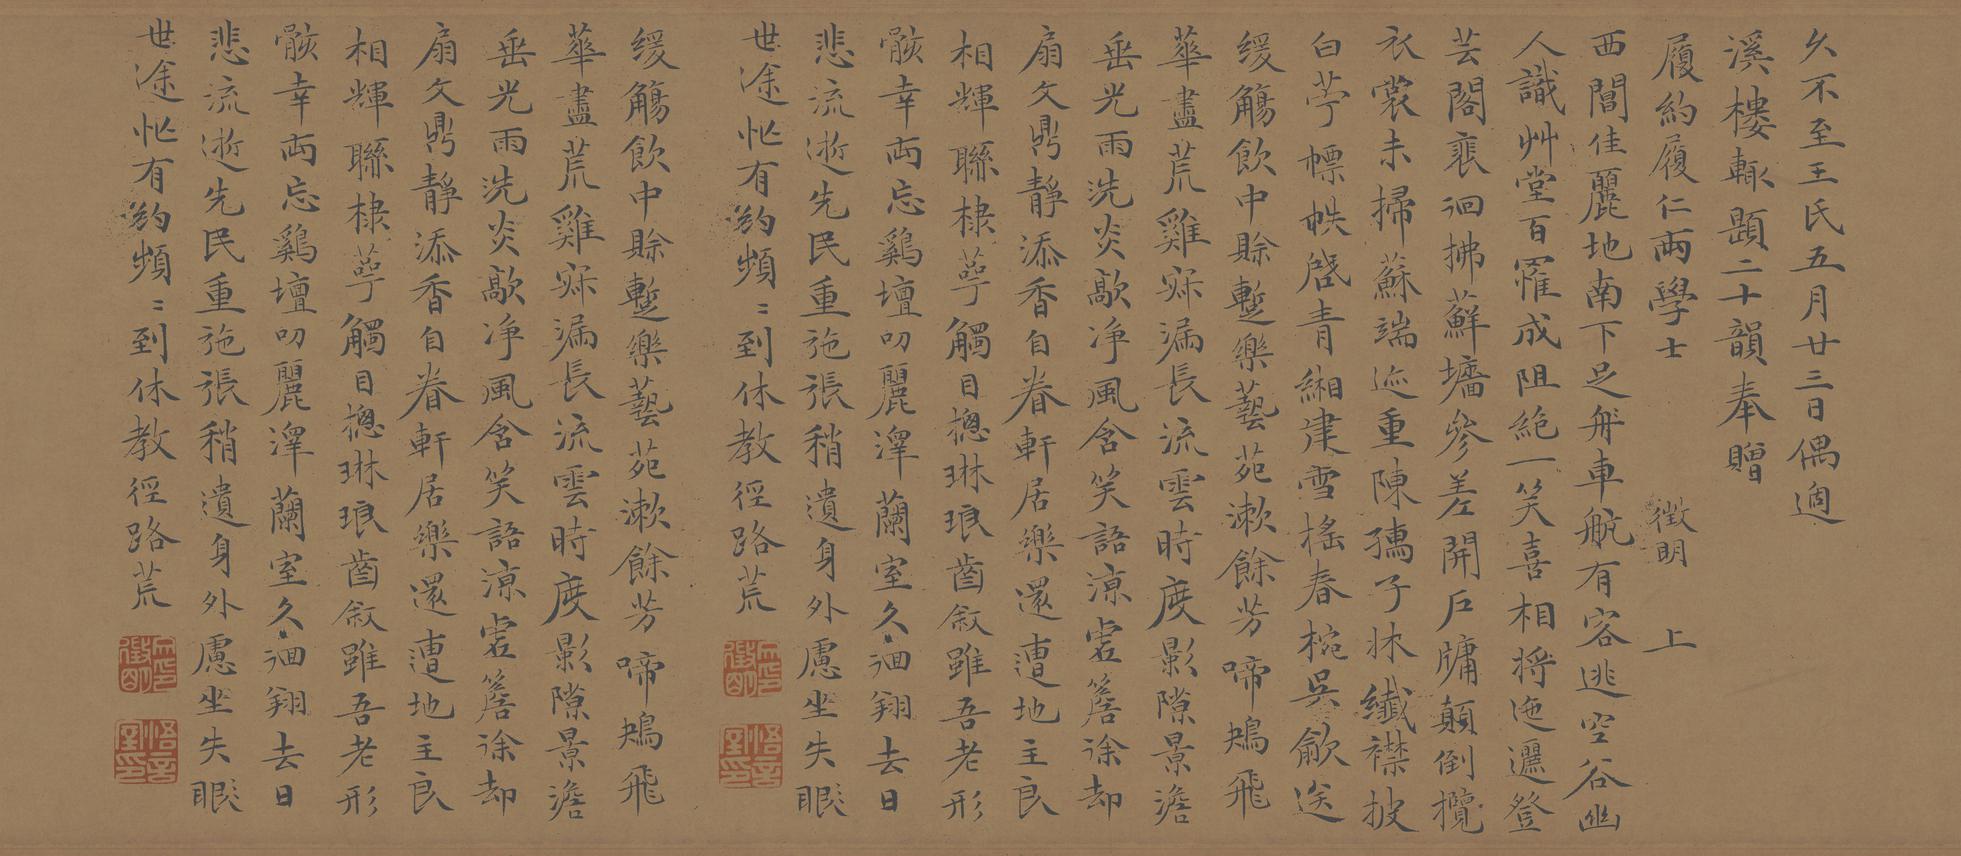 久不至王氏五月廿三日偶適
溪樓輙題二十韻奉贈
履約履仁兩學士
徵明 上
西閶佳麗地南下足舟車航有客逃空谷幽
人識艸堂百罹成阻絶一笑喜相將迤邐登
芸閣裵徊拂蘚墻參差開戶牖顛倒攬
衣裳未掃蘇端迹重陳孺子牀纖襟披
白苧幖帙啓青緗浄雪搖春椀吳歈送
緩觴飲中賒蹔樂藝苑漱餘芳啼鴂飛
華盡荒雞寐漏長流雲時度影隙景澹
垂光雨洗炎歊净風含笑語凉虛簷徐却
扇文鼎靜添香自眷軒居樂還遭地主良
相輝聯棣萼觸目摠琳琅齒敘雖吾老形
骸幸兩忘鷄壇叨麗澤蘭室久徊翔去日
悲流逝先民重弛張稍遺身外慮坐失眼
世途忙有約頻〻到休教徑路荒
緩觴飲中賒蹔樂藝苑漱餘芳啼鴂飛
華盡荒雞寐漏長流雲時度影隙景澹
垂光雨洗炎歊净風含笑語凉虛簷徐却
扇文鼎靜添香自眷軒居樂還遭地主良
相輝聯棣萼觸目摠琳琅齒敘雖吾老形
骸幸兩忘鷄壇叨麗澤蘭室久徊翔去日
悲流逝先民重弛張稍遺身外慮坐失眼
世途忙有約頻〻到休教徑路荒